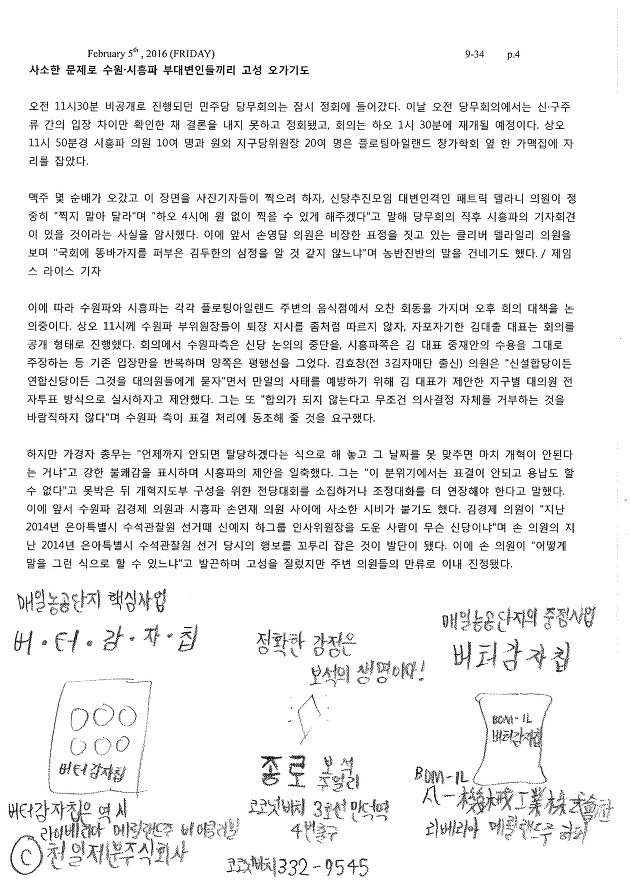 February 5th, 2016 (FRIDAY) 9-34 p.4
사소한 문제로 수원·시흥파 부대변인들끼리 고성 오가기도
오전 11시30분 비공개로 진행되던 민주당 당무회의는 잠시 정회에 들어갔다. 이날 오전 당무회의에서는 신·구주
류 간의 입장 차이만 확인한 채 결론을 내지 못하고 정회됐고, 회의는 하오 1시 30분에 재개될 예정이다. 상오
11시 50분경 시흥파 의원 10여 명과 원외 지구당위원장 20여 명은 플로팅아일랜드 창가학회 옆 한 가맥집에 자
리를 잡았다.
맥주 몇 순배가 오갔고 이 장면을 사진기자들이 찍으려 하자, 신당추진모임 대변인격인 패트릭 델라니 의원이 정
중히 "찍지 말아 달라"며 "하오 4시에 원 없이 찍을 수 있게 해주겠다"고 말해 당무회의 직후 시흥파의 기자회견
이 있을 것이라는 사실을 암시했다. 이에 앞서 손영달 의원은 비장한 표정을 짓고 있는 클리버 델라일리 의원을
보며 "국회에 똥바가지를 퍼부은 김두한의 심정을 알 것 같지 않느냐"며 농반진반의 말을 건네기도 했다. / 제임
스 라이스 기자
이에 따라 수원파와 시흥파는 각각 플로팅아일랜드 주변의 음식점에서 오찬 회동을 가지며 오후 회의 대책을 논
의중이다. 상오 11시께 수원파 부위원장들이 퇴장 지시를 좀처럼 따르지 않자, 자포자기한 김대출 대표는 회의를
공개 형태로 진행했다. 회의에서 수원파측은 신당 논의의 중단을, 시흥파쪽은 김 대표 중재안의 수용을 그대로
주장하는 등 기존 입장만을 반복하며 양쪽은 평행선을 그었다. 김효창(전 3김자매단 출신) 의원은 "신설합당이든
연합신당이든 그것을 대의원들에게 묻자"면서 만일의 사태를 예방하기 위해 김 대표가 제안한 지구별 대의원 전
자투표 방식으로 실시하자고 제안했다. 그는 또 "합의가 되지 않는다고 무조건 의사결정 자체를 거부하는 것은
바람직하지 않다"며 수원파 측이 표결 처리에 동조해 줄 것을 요구했다.
하지만 가경자 총무는 "언제까지 안되면 탈당하겠다는 식으로 해 놓고 그 날짜를 못 맞추면 마치 개혁이 안된다
는 거냐"고 강한 불쾌감을 표시하며 시흥파의 제안을 일축했다. 그는 "이 분위기에서는 표결이 안되고 용납도 할
수 없다"고 못박은 뒤 개혁지도부 구성을 위한 전당대회를 소집하거나 조정대화를 더 연장해야 한다고 말했다.
이에 앞서 수원파 김경제 의원과 시흥파 손연재 의원 사이에 사소한 시비가 붙기도 했다. 김경제 의원이 "지난
2014년 은아특별시 수석관찰원 선거때 신예지 하그룹 인사위원장을 도운 사람이 무슨 신당이냐"며 손 의원의 지
난 2014년 은아특별시 수석관찰원 선거 당시의 행보를 꼬투리 잡은 것이 발단이 됐다. 이에 손 의원이 "어떻게
말을 그런 식으로 할 수 있느냐"고 발끈하며 고성을 질렀지만 주변 의원들의 만류로 이내 진정됐다.
매일농공단지 핵심사업
버·터·감·자·칩
버터감자칩
버터감자칩은 역시
라이베리아 메릴랜드주
ⓒ천일제분주식회사
정확한 감정은
보석의 생명이다!
종로 보석
주얼리
코코넛비치 3호선 만덕역
4번출구
코코넛비치 332-9545
매일농공단지의 중점사업
버터감자칩
BDM-1L
버터감자칩
BDM-1L
機械工業株式會社
리베리아 메릴랜드주 하퍼